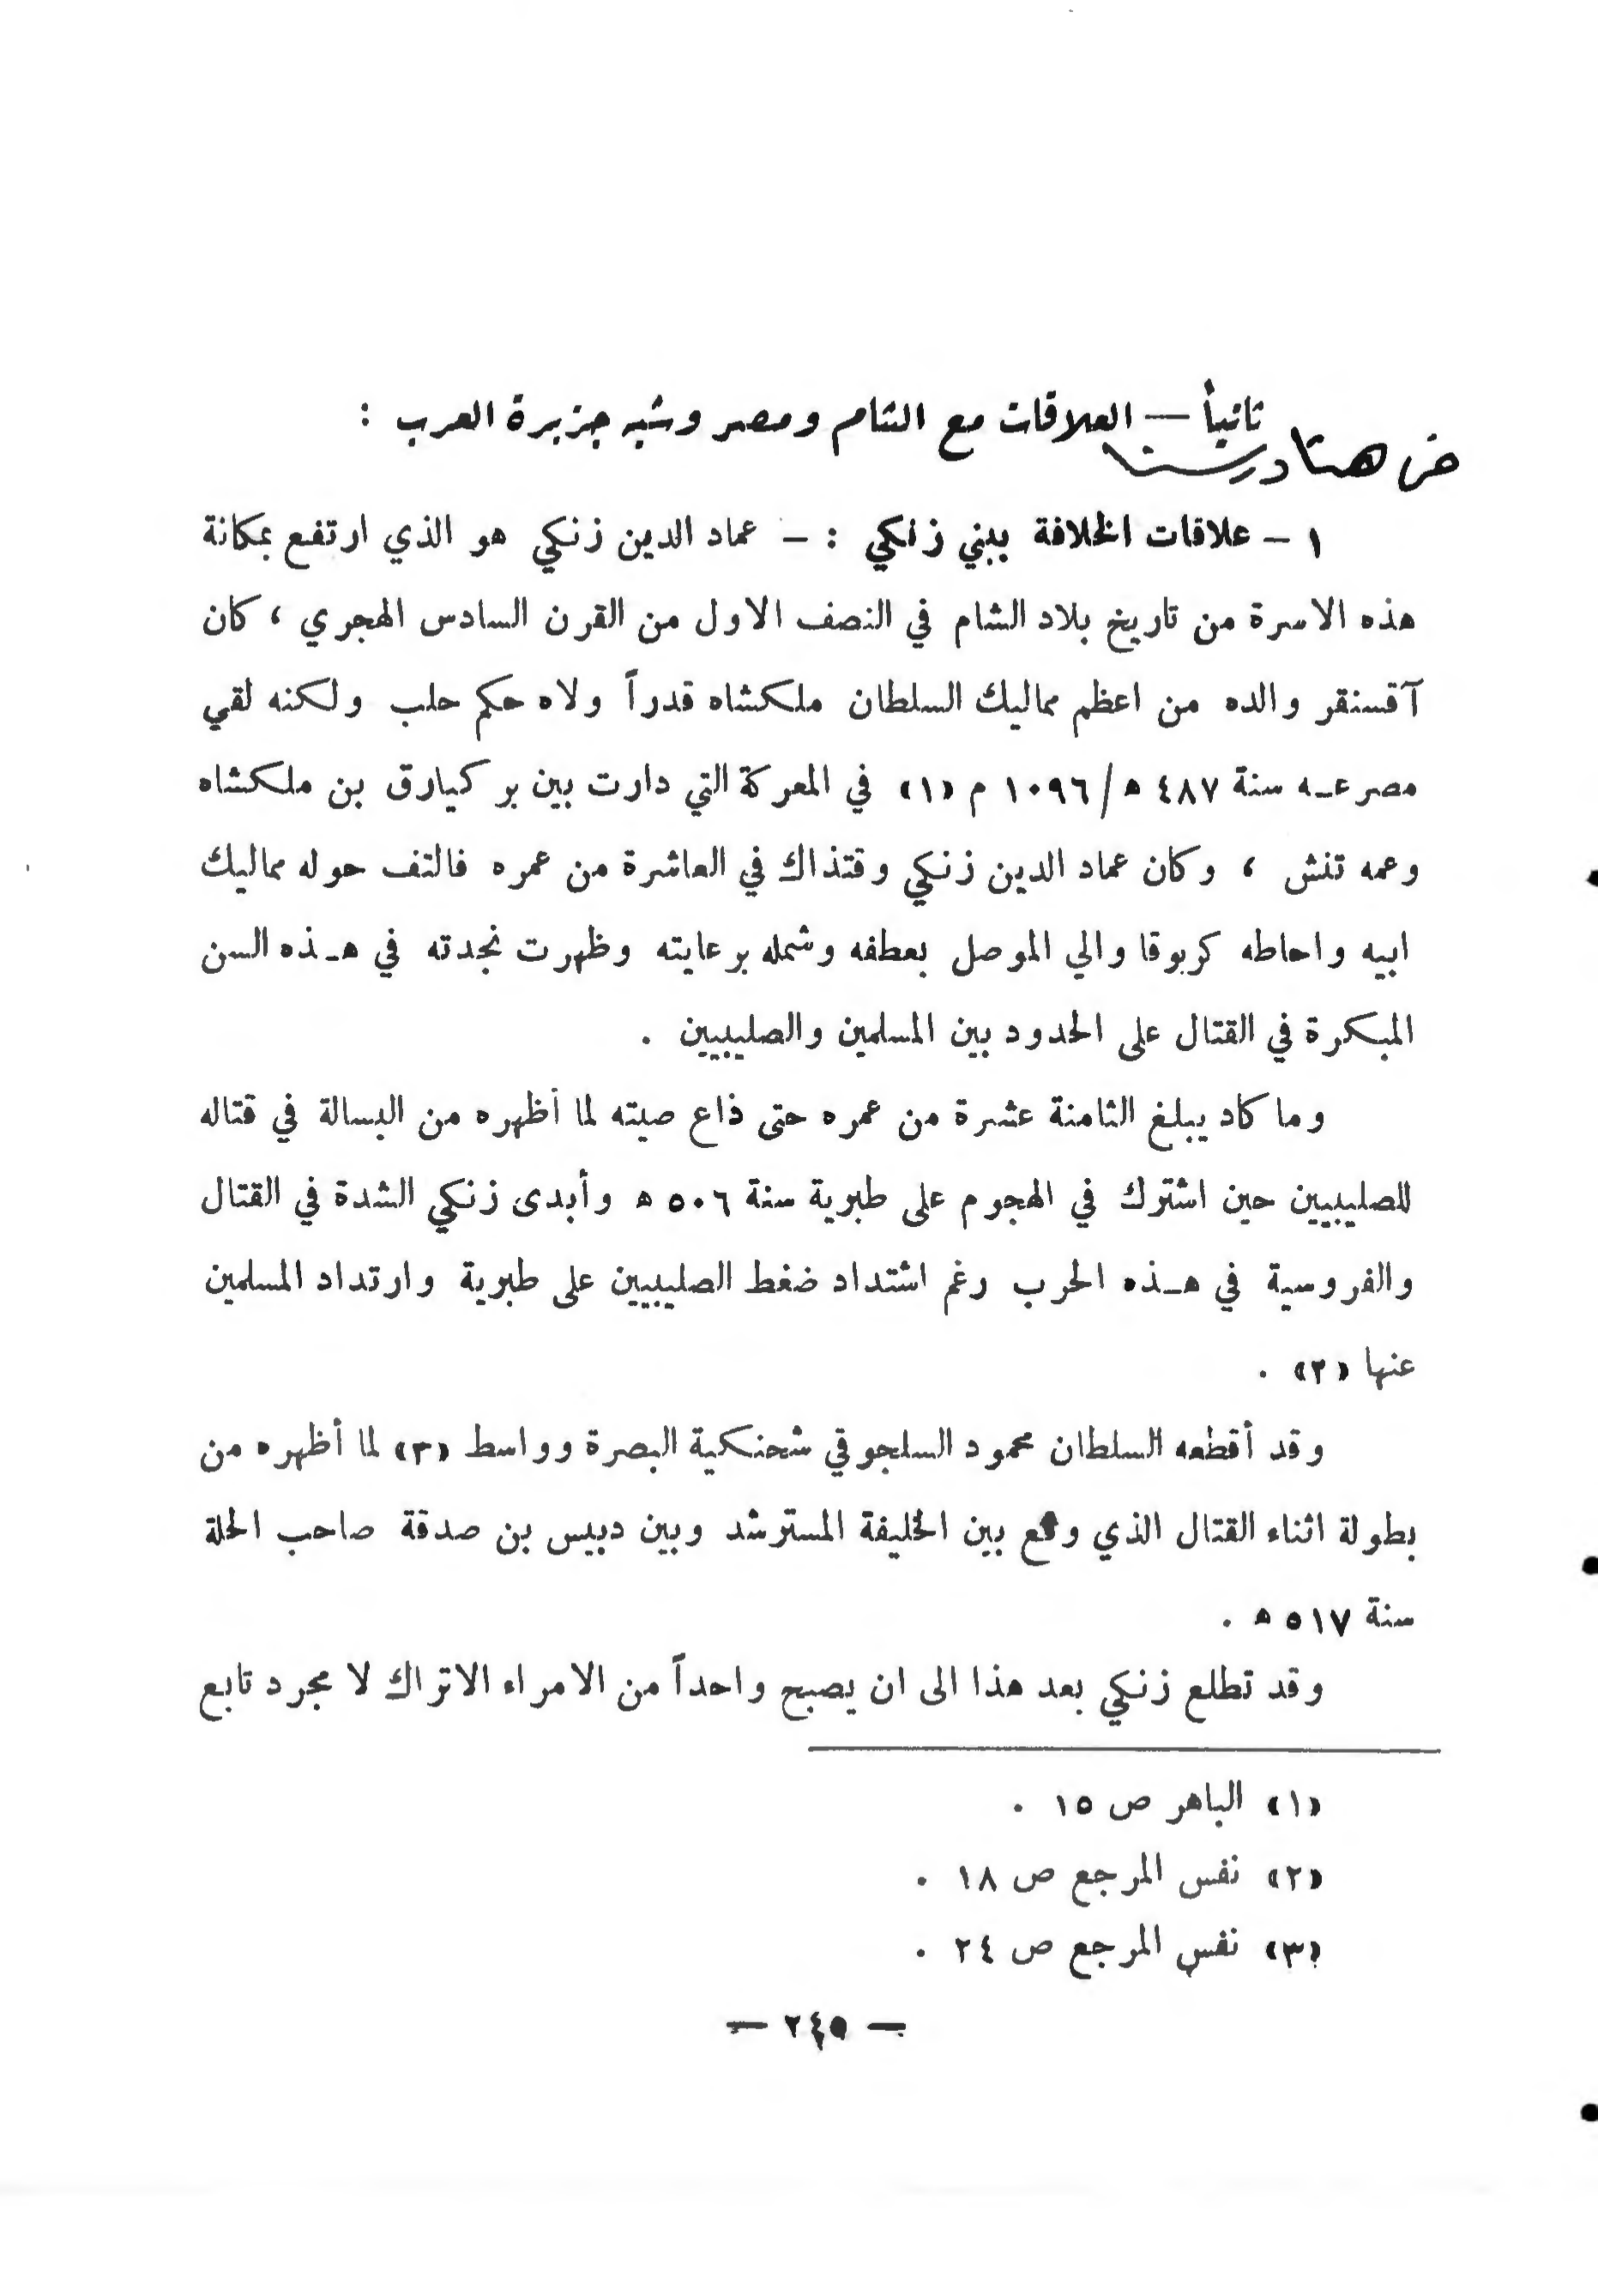 ثانياً — العلاقات مع الشام ومصر وشبه جزيرة العرب :
من هنا درسنا
١ – علاقات الخلافة ببني زنكي : – عماد الدين زنكي هو الذي ارتفع بمكانة
هذه الاسرة من تاريخ بلاد الشام في النصف الاول من القرن السادس الهجري ، كان
آقسنقر والده من اعظم مماليك السلطان ملكشاه قدراً ولاه حكم حلب ولكنه لقي
مصرعـه سنة ٤٨٧ ه / ١٠٩٦ م «١» في المعركة التي دارت بين بركيارق بن ملكشاه
وعمه تنش ، وكان عماد الدين زنكي وقتذاك في العاشرة من عمره فالتف حوله مماليك
ابيه واحاطه كربوقا والي الموصل بعطفه وشمله برعايته وظهرت نجدته في هـذه السن
المبكرة في القتال على الحدود بين المسلمين والصليبيين .
وما كاد يبلغ الثامنة عشرة من عمره حتى ذاع صيته لما أظهره من البسالة في قتاله
للصليبيين حين اشترك في الهجوم على طبرية سنة ٥٠٦ ه وأبدى زنكي الشدة في القتال
والفروسية في هـذه الحرب رغم اشتداد ضغط الصليبيين على طبرية وارتداد المسلمين
عنها «٢» .
وقد أقطعه السلطان محمود السلجوقي شحنكية البصرة وواسط «٣» لما أظهره من
بطولة اثناء القتال الذي وقع بين الخليفة المسترشد وبين دبيس بن صدقة صاحب الحلة
سنة ٥١٧ ه .
وقد تطلع زنكي بعد هذا الى ان يصبح واحداً من الامراء الاتراك لا مجرد تابع
«١» الباهر ص ١٥ .
«٢» نفس المرجع ص ١٨ .
«٣» نفس المرجع ص ٢٤ .
— ٢٤٥ —